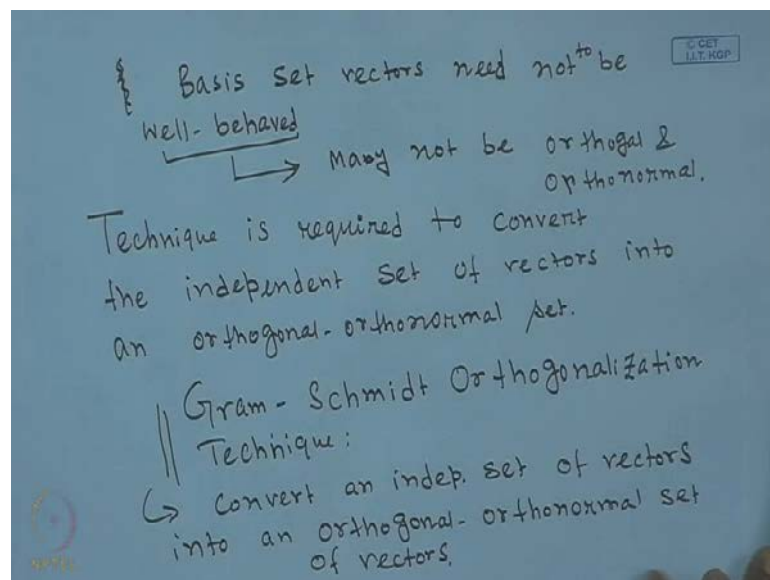 © CET
I.I.T. KGP
Basis set vectors need not to be
well-behaved
Many not be orthogal &
orthonormal.
Technique is required to convert
the independent set of vectors into
an orthogonal-orthonormal set.
Gram-Schmidt Orthogonalization
Technique:
Convert an indep. set of vectors
into an orthogonal-orthonormal set
of vectors.
NPTEL